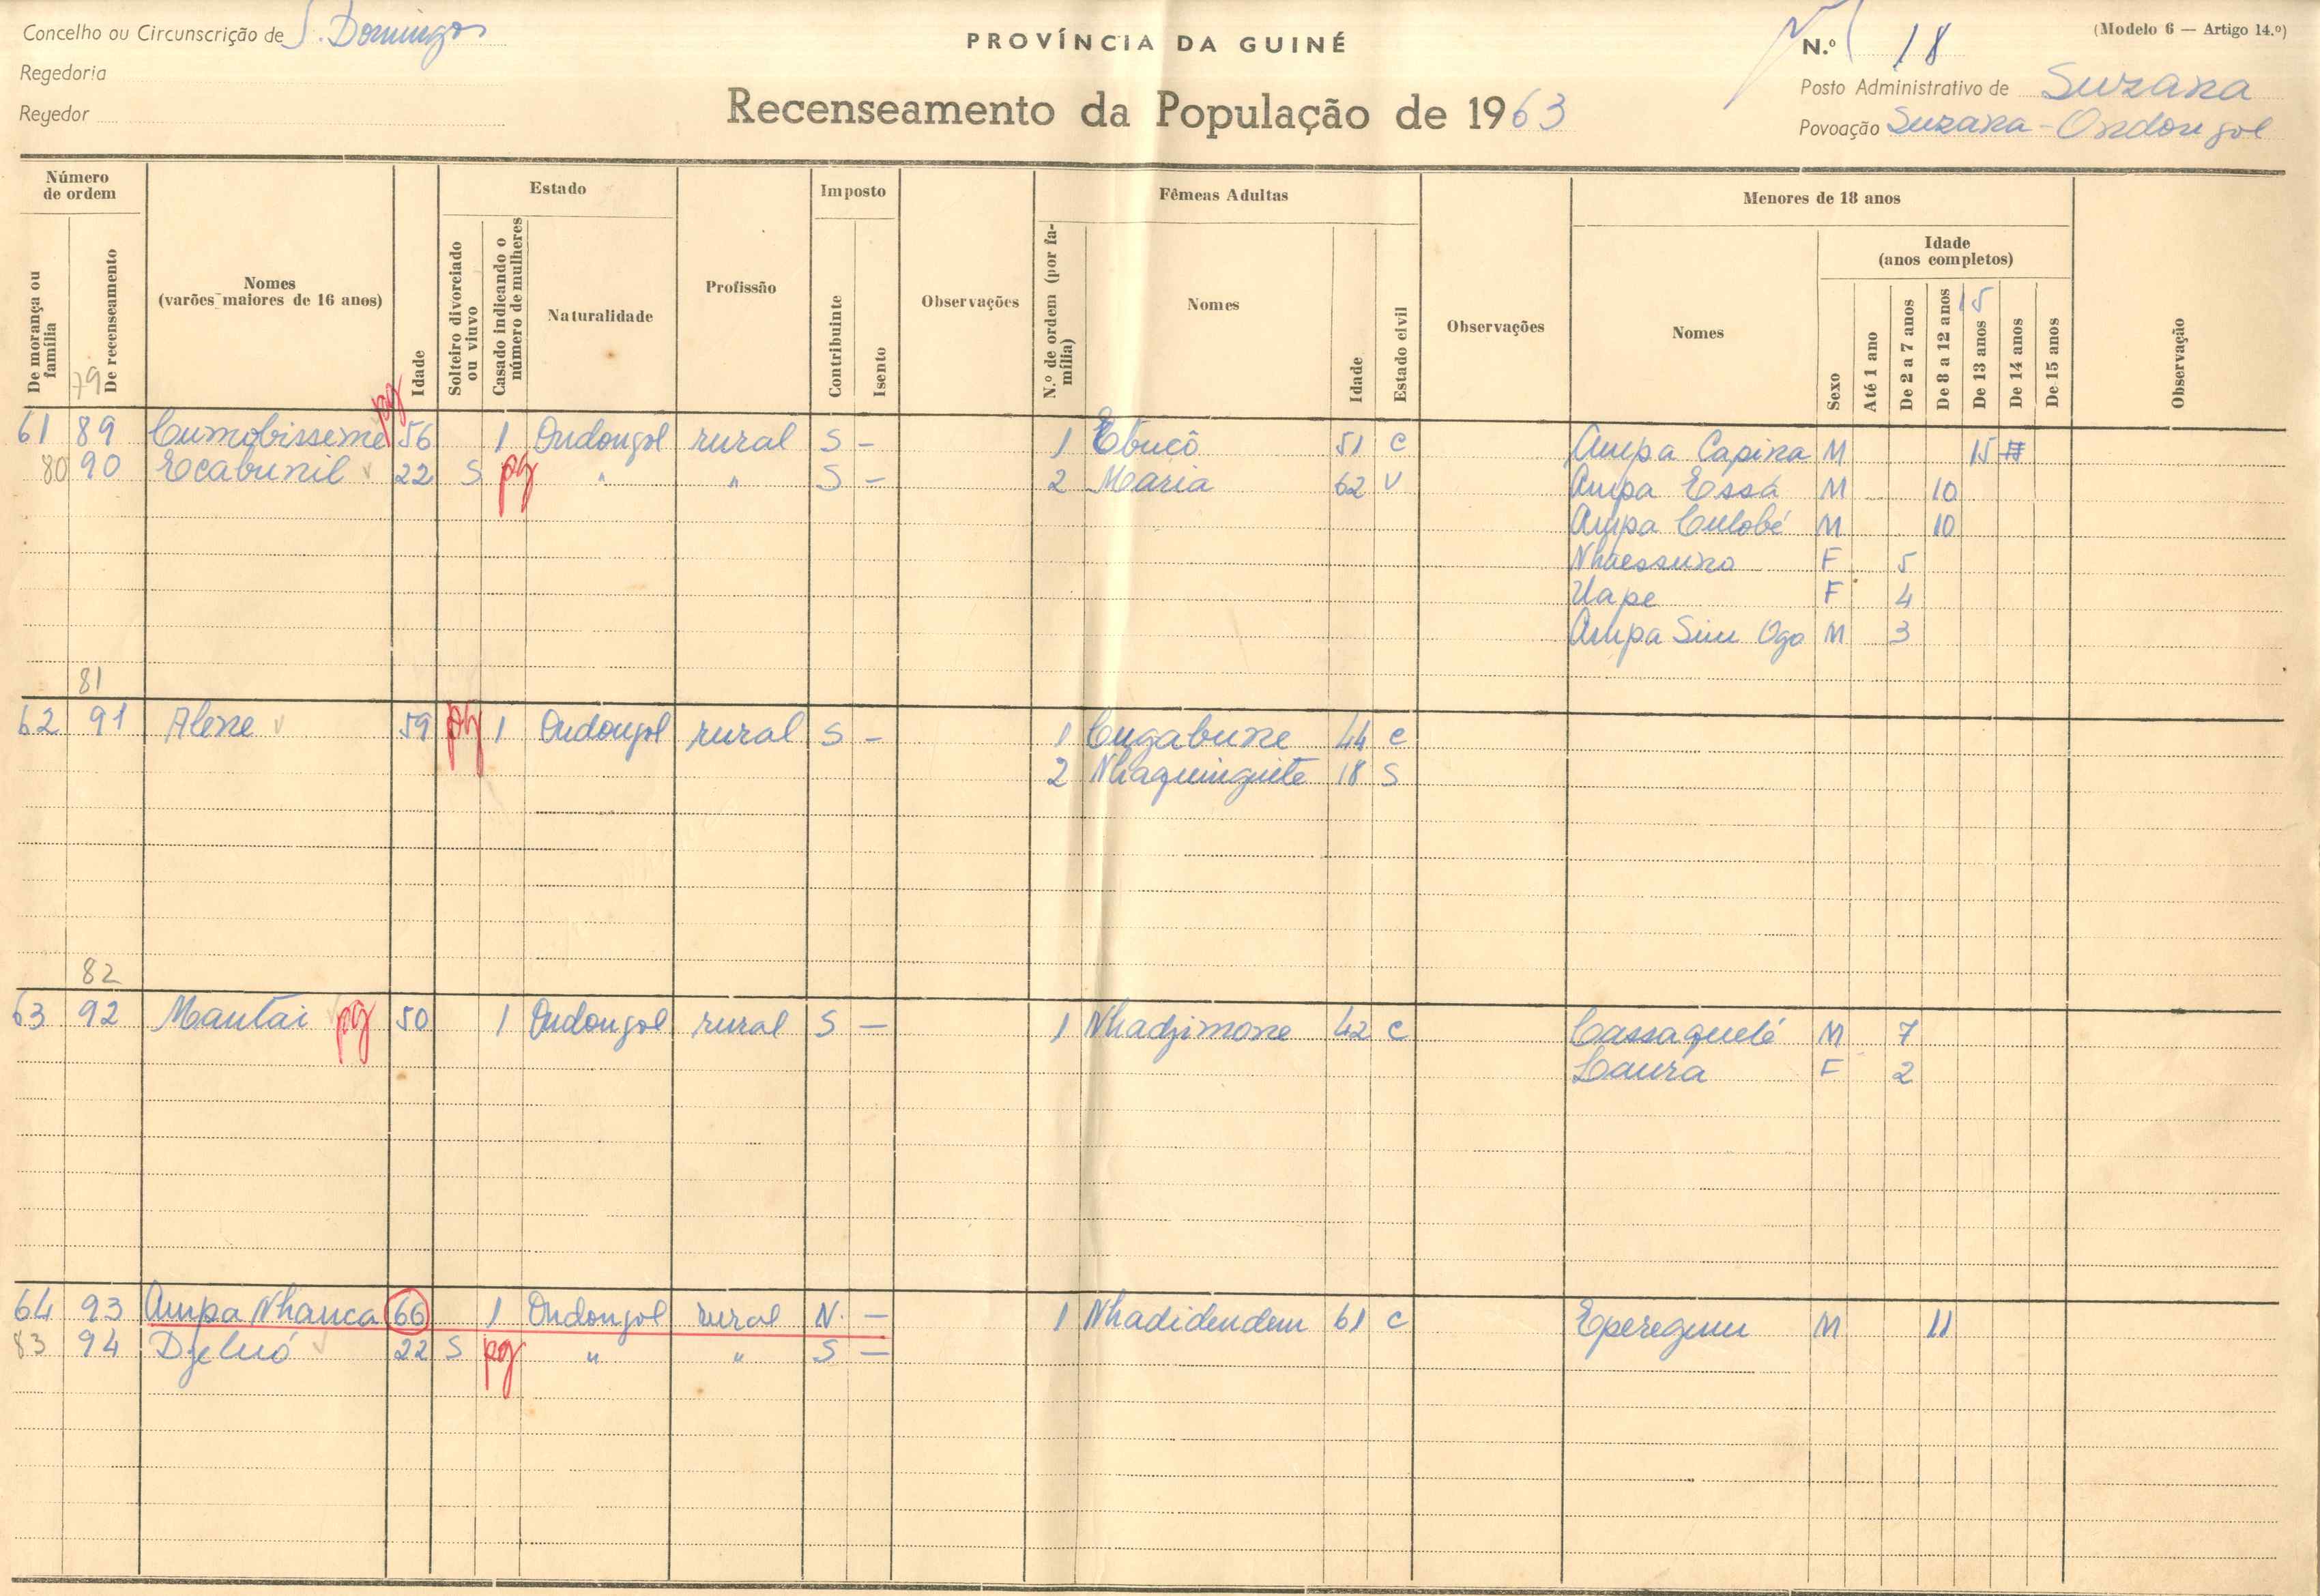 Concelho ou Circunscrição de S. Domingos
PROVÍNCIA DA GUINÉ
N.º 18
(Modelo 6 — Artigo 14.º)
Regedoria
Posto Administrativo de Suzana
Regedor
Recenseamento da População de 1963
Povoação Suzana - Ondongol
Número de ordem
De morança ou família
De recenseamento
Nomes
(varões maiores de 16 anos)
Idade
Estado
Solteiro divorciado ou viuvo
Casado indicando o número de mulheres
Naturalidade
Profissão
Imposto
Contribuinte
Isento
Observações
Fêmeas Adultas
N.º de ordem (por família)
Nomes
Idade
Estado civil
Observações
Menores de 18 anos
Nomes
Sexo
Idade
(anos completos)
Até 1 ano
De 2 a 7 anos
De 8 a 12 anos
15
De 13 anos
De 14 anos
De 15 anos
Observação
79
pg
61 89 Cumobisseme 56 1 Ondongol rural S — 1 Ebucô 51 C Ampa Capina M 15
80 90 Ecabunil 22 S pg " " S — 2 Maria 62 V Ampa Essá M 10
Ampa Culobé M 10
Nhaessuno F 5
Uape F 4
Ampa Simu Ogo M 3
81
62 91 Alene 59 pg 1 Ondongol rural S — 1 Cugabune 44 C
2 Nhaquinguite 18 S
82
63 92 Mantai pg 50 1 Ondongol rural S — 1 Nhadjimone 42 C Cassaquelé M 7
Laura F 2
64 93 Ampa Nhanca 66 1 Ondongol rural N. — 1 Nhadidendem 61 C Eperegumu M 11
83 94 Djeluó 22 S pg " " S —